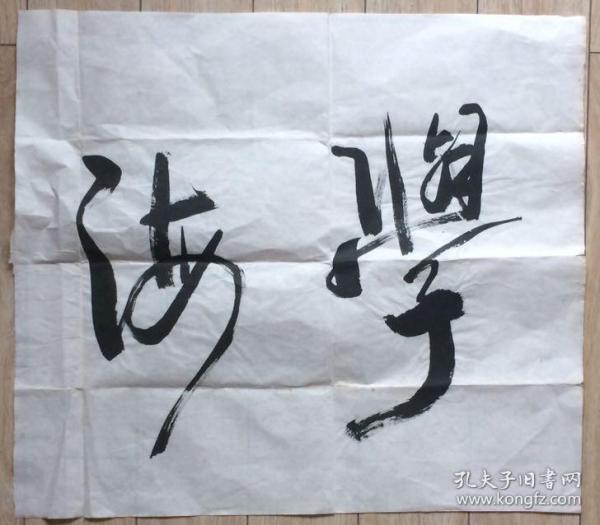 學海
孔夫子旧书网
www.kongfz.com